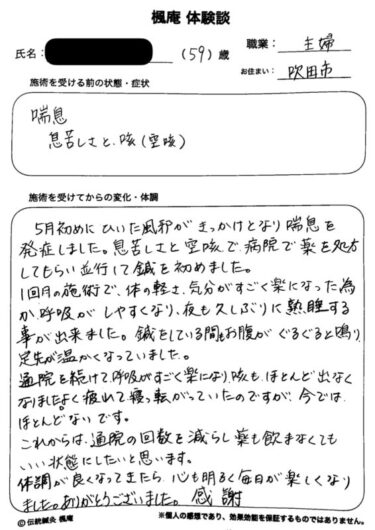 楓庵 体験談
氏名： (59) 歳
職業： 主婦
お住まい： 吹田市
施術を受ける前の状態・症状
喘息
息苦しさと、咳(空咳)
施術を受けてからの変化・体調
5月初めにひいた風邪がきっかけとなり喘息を
発症しました。息苦しさと空咳で、病院で薬を処方
してもらい並行して鍼を初めました。
1回目の施術で、体の軽さ、気分がすごく楽になった為
か、呼吸がしやすくなり、夜も久しぶりに熟睡する
事が出来ました。鍼をしている間もお腹がぐるぐると鳴り、
足先が温かくなっていました。
通院を続けて、呼吸がすごく楽になり、咳も、ほとんど出なく
なりました。よく疲れて寝っ転がっていたのですが、今では、
ほとんどないです。
これからは、通院の回数を減らし薬も飲まなくても
いい状態にしたいと思います。
体調が良くなってきたら、心も明るく毎日が楽しくなり
ました。ありがとうございました。感謝
© 伝統鍼灸 楓庵
※個人の感想であり、効果効能を保証するものではありません。